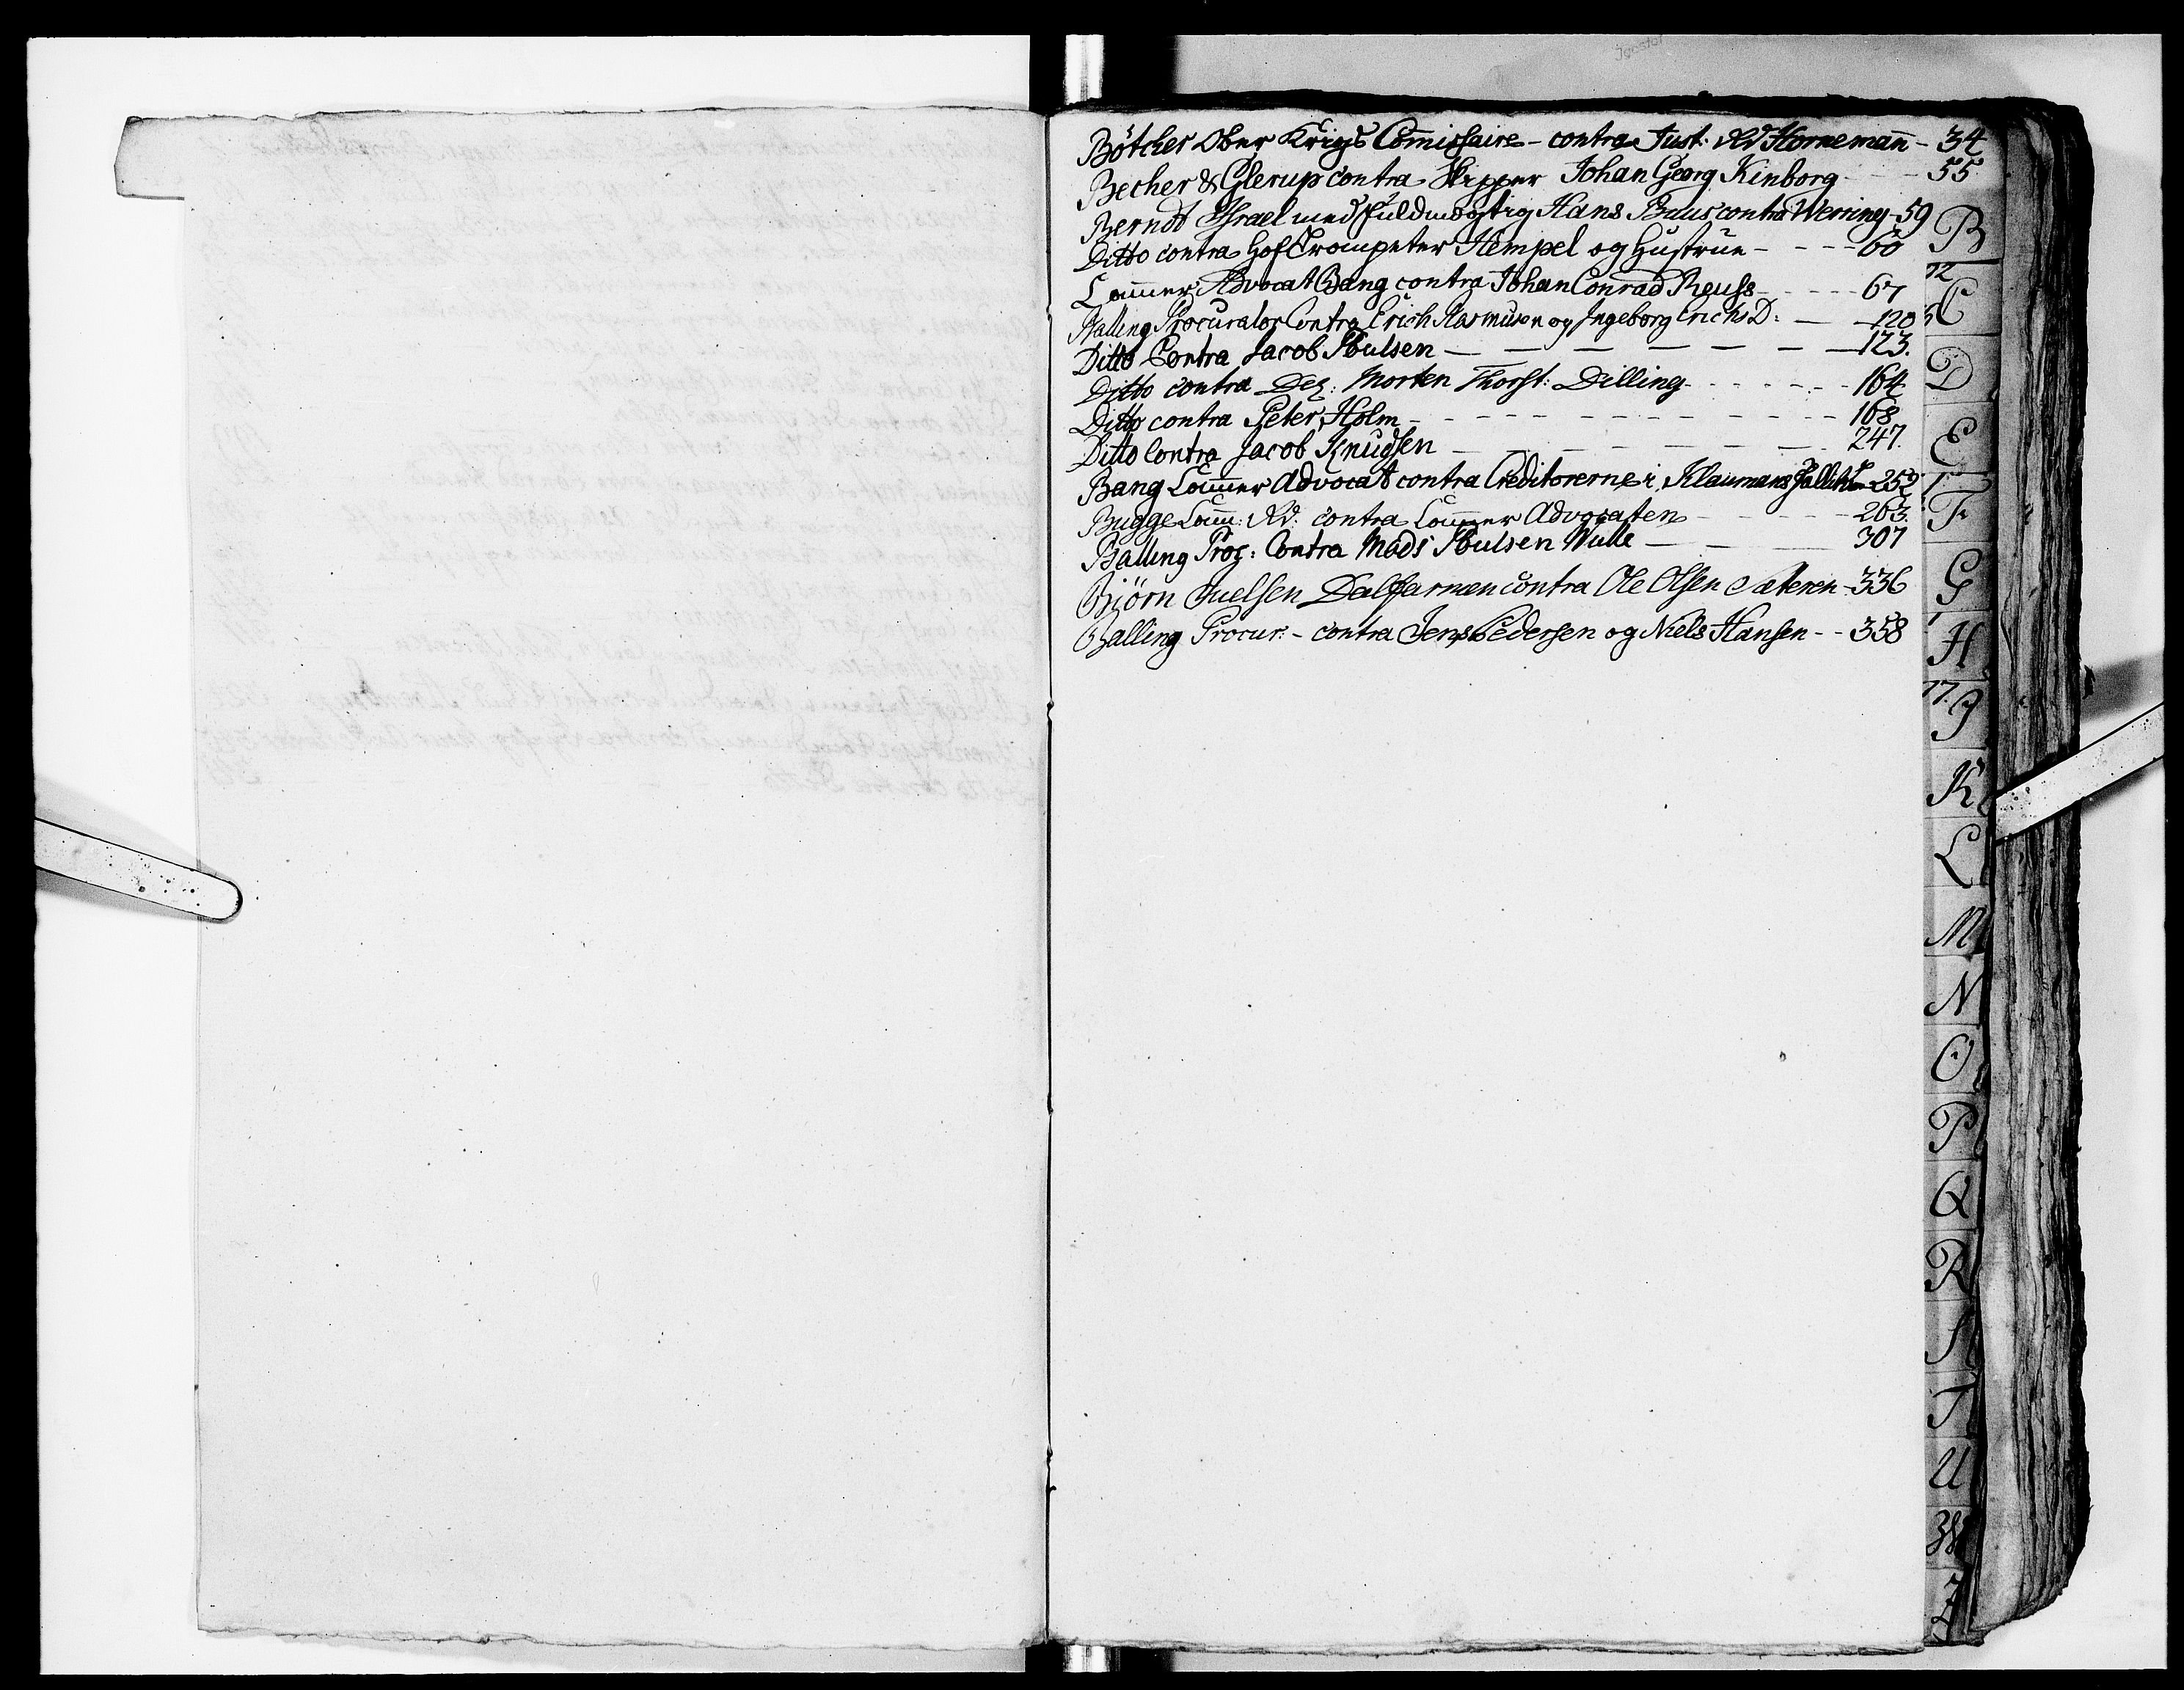 Bötcher Ober Krigs Com̄issaire - contra Just: Rd Hornemañ - 34
Becher & Glerup contra Skipper Johan Georg Kinborg - - - 55
Berndt Israel med fuldmægtig Hans Buus contra Werring - 59
Ditto contra Hof Trompeter Hempel og Hustrue - - - - 60
Cam̄er Advocat Bang contra Johan Conrad Reuss - - - - 67
Balling Procurator Contra Erich Rasmusen og Ingeborg Erichs D: - 120
Ditto Contra Jacob Poulsen - - - - - - - 123.
Ditto contra Morten Thorst: Dilling - - - - - - 164
Ditto contra Peter Holm - - - - - - - - - 168
Ditto Contra Jacob Knudsen - - - - - - 247.
Bang Cam̄er Advocat contra Creditorerne i Klaumans 252
Bugge Cam̄: Rd: contra Cam̄er Advocaten - - - - - 263.
Balling Proc: Contra Mads Poulsen Wulle - - - 307
Björn Juelsen contra Ole Olsen - 336
Balling Procur: - contra Jens Pedersen og Niels Hansen - - 358
B
C
D
E
F
G
H
J
K
L
M
N
O
P
Q
R
S
T
U